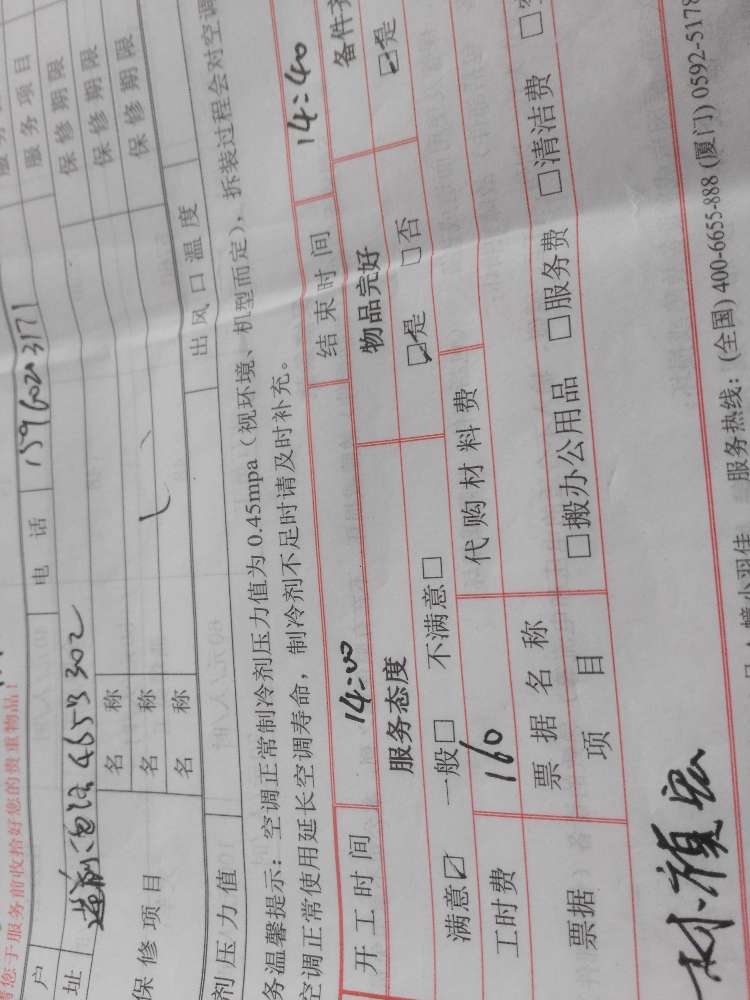 请您于服务前收拾好您的贵重物品!
户 电 话 15960223171 服务项目
址 465号302 保修期限
名 称 保修期限
保 修 项 目 名 称 保修期限
名 称
剂 压 力 值 出 风 口 温 度
务温馨提示：空调正常制冷剂压力值为 0.45mpa（视环境、机型而定），拆装过程会对空调
空调正常使用延长空调寿命，制冷剂不足时请及时补充。
开 工 时 间 14:00 结 束 时 间 14:40
服务态度 物品完好 备件齐
满意☑ 一般□ 不满意□ ☑是 □否 ☑是
工时费 160 代 购 材 料 费
票据 票 据 名 称
项 目 □搬办公用品 □服务费 □清洁费 □
服务热线：(全国) 400-6655-888 (厦门) 0592-5178